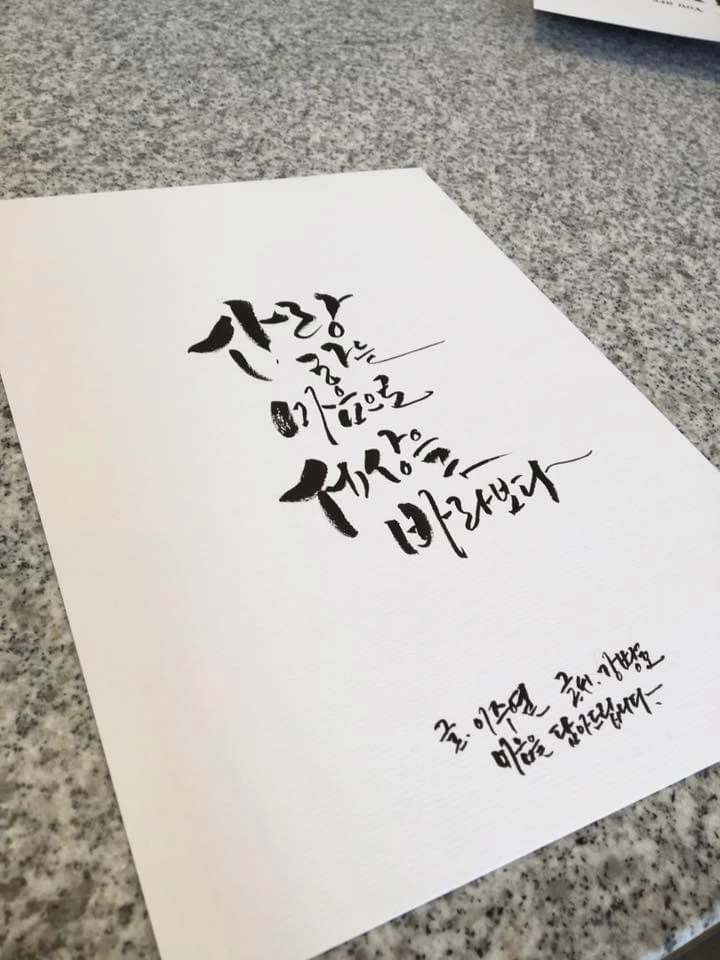 You are
사랑
하는
마음으로
세상을
바라보다
글.이주열 글씨.강병호
마음을 담아드립니다.